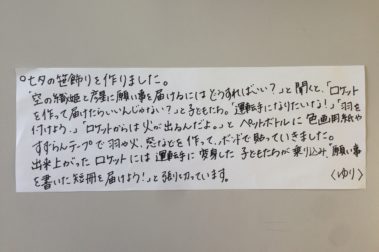 ○七夕の笹飾りを作りました。
「空の織姫と彦星に願い事を届けるにはどうすればいい？」と聞くと、「ロケット
を作って届けたらいいんじゃない？」と子どもたち。「運転手になりたいな！」「羽を
付けよう。」「ロケットからは火が出るんだよ。」とペットボトルに色画用紙や
すずらんテープで羽や火、窓などを作って、ボンドで貼っていきました。
出来上がったロケットには運転手に変身した子どもたちが乗り込み「願い事
を書いた短冊を届けよう！」と張り切っています。
〈ゆり〉